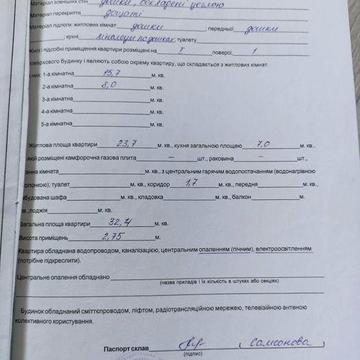 Матеріал зовнішніх стін дошки, обкладені цеглою
Матеріал перекриття дощаті
Матеріал підлоги: житлових кімнат дошки передньої дошки
, кухні лінолеум по дошках, туалету
Жилі і підсобні приміщення квартири розміщені на 1 поверсі 1
поверхового будинку і являють собою окрему квартиру, що складається з житлових кімнат
1-а кімната 15,7 м. кв.
2-а кімната 8,0 м. кв.
3-а кімната м. кв.
4-а кімната м. кв.
5-а кімната м. кв.
Житлова площа квартири 23,7 м. кв., кухня загальною площею 7,0 м. кв.
якій розміщені камфорочна газова плита – шт., раковина – шт.
ванна кімната м. кв., з центральним гарячим водопостачанням (водонагрівною
колонкою), туалет м. кв., коридор 1,7 м. кв., передня м. кв.
вбудована шафа м. кв., кладовка м. кв., балкон м.
кв., лоджія м. кв.
Загальна площа квартири 32,4 м. кв.
Висота приміщень 2,75 м.
Квартира обладнана водопроводом, каналізацією, центральним опаленням (пічним), електроосвітленням
(потрібне підкреслити).
Центральне опалення обладнано
(назва приладів і їх кількість в штуках або секціях)
Будинок обладнаний сміттєпроводом, ліфтом, радіотрансляційною мережею, телевізійною антеною
колективного користування.
Паспорт склав Самсонова
(підпис)